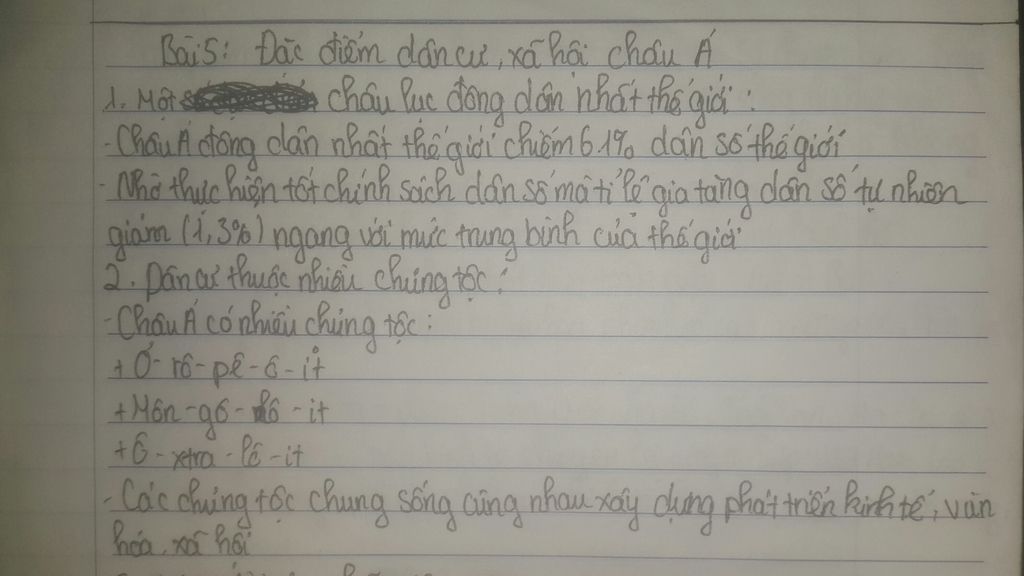 Bài 5: Đặc điểm dân cư, xã hội châu Á
1. Một châu lục đông dân nhất thế giới:
- Châu Á đông dân nhất thế giới chiếm 61% dân số thế giới
- Nhờ thực hiện tốt chính sách dân số mà tỉ lệ gia tăng dân số tự nhiên
giảm (1,3%) ngang với mức trung bình của thế giới
2. Dân cư thuộc nhiều chủng tộc:
- Châu Á có nhiều chủng tộc:
+ Ơ-rô-pê-ô-it
+ Môn-gô-lô-it
+ Ô-xtra-lô-it
- Các chủng tộc chung sống cùng nhau xây dựng phát triển kinh tế, văn
hóa, xã hội